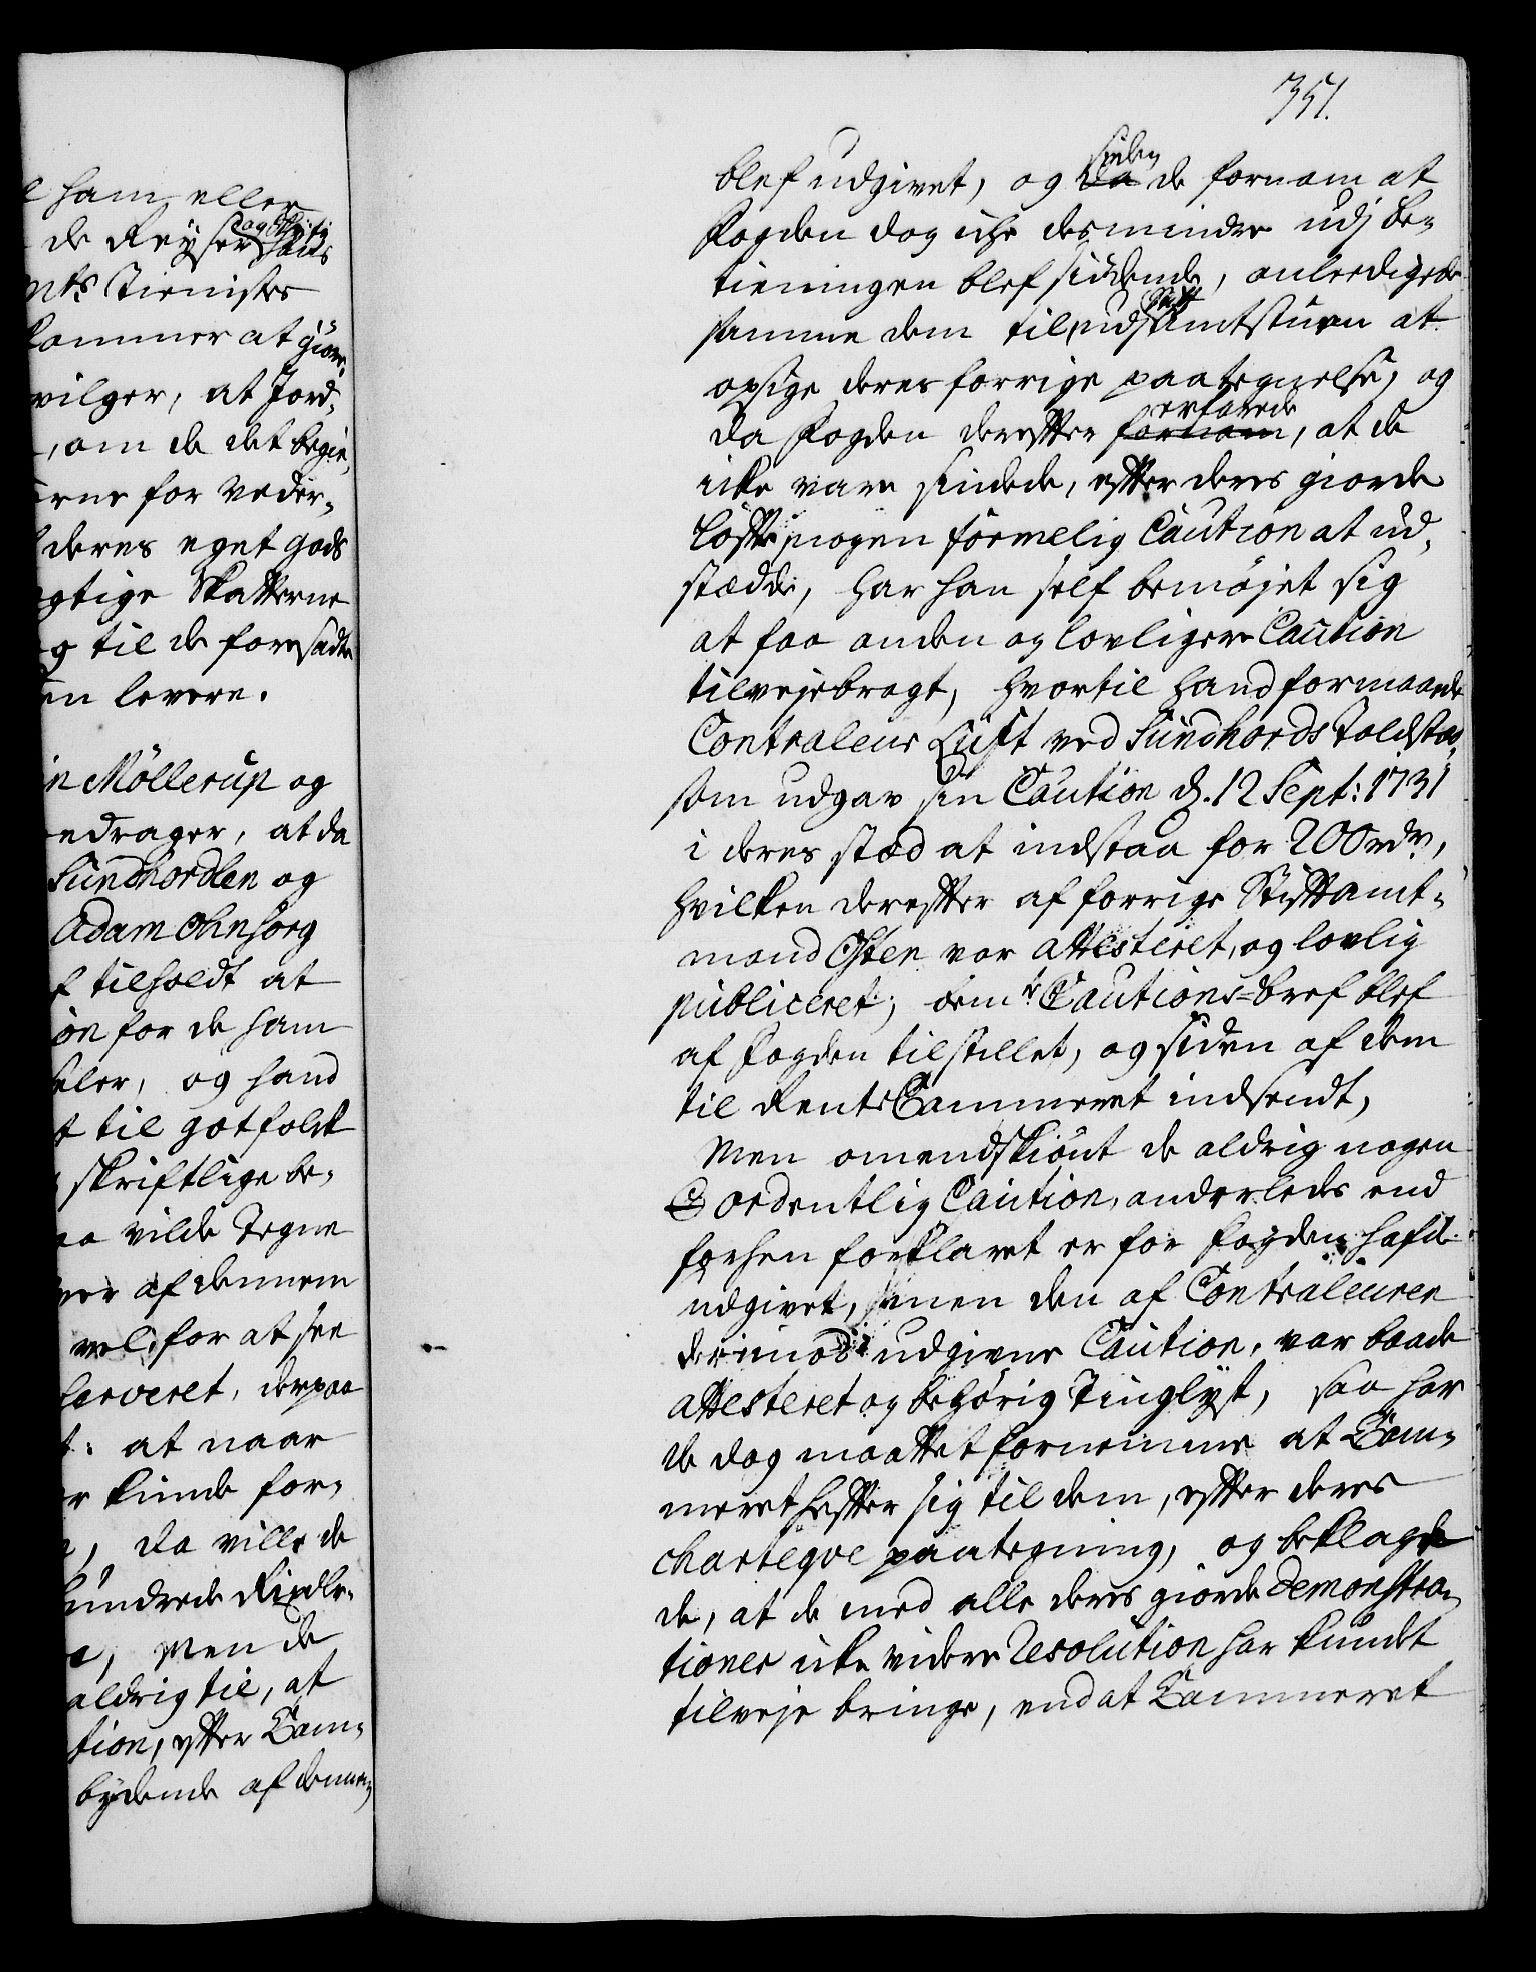 351.
blef udgivet, og siden de fornam at
Fogden dog iche desmindre udj be-
tieningen blef siddende, anleedigede
samme dem til, udj Stift amtstuen at
opsige deres forrige paategnelse, og
da Fogden derefter erfarede, at de
icke vare sindede, efter deres giorde
løfte, nogen formelig Caution at ud-
stædde, har han self bemøjet sig
at faa anden og lovligere Caution
tilvejebragt, hvortil hand formaaede
Contraleur Luft ved Sundhords Toldsted,
som udgav sin Caution d. 12 Sept: 1731
i deres stæd at indstaa for 200 rdr,
hvilken derefter af forrige Stiftamt-
mand Osten var attesteret, og lovlig
publiceret; bem.te Cautions-bref blef
af Fogden tilstillet, og siden af dem
til RenteCammeret indsendt,
Men omendskiønt de aldrig nogen
ordentlig Caution, anderleds end
forhen forklaret er for Fogden hafde
udgivet, men den af Contraleuren
derimod udgivne Caution, var baade
attesteret og behørig Tinglyst, saa har
de dog maattet fornemme at Cam-
meret hefter sig til dem, efter deres
charteqve paategning, og beklage
de, at de med alle deres giorde Demonstra-
tioner icke videre Resolution har kundet
tilveje bringe, end at Cammeret
ham eller
de Reyser og Skrifs hans
Tienister
kommer at giøre,
vilger, at Jord-
, om de det begie-
erne for Veder-
deres eget gods
gtige Skatterne
g til de foresadte
en levere.
in Möllerup og
ndrager, at da
Sundhordlen og
Adam Ohnsorg
f tilholdt at
ion for de ham
eler, og hand
t til gotfolck
skriftlige be-
aa vilde Tegne
ver af dennem
vel, for at see
Conserveret, derpaa
t: at naar
r kunde for-
, da ville de
hundrede Rixdlr.
e, Men de
aldrig til, at
tion, efter Cam-
bydende af dennem